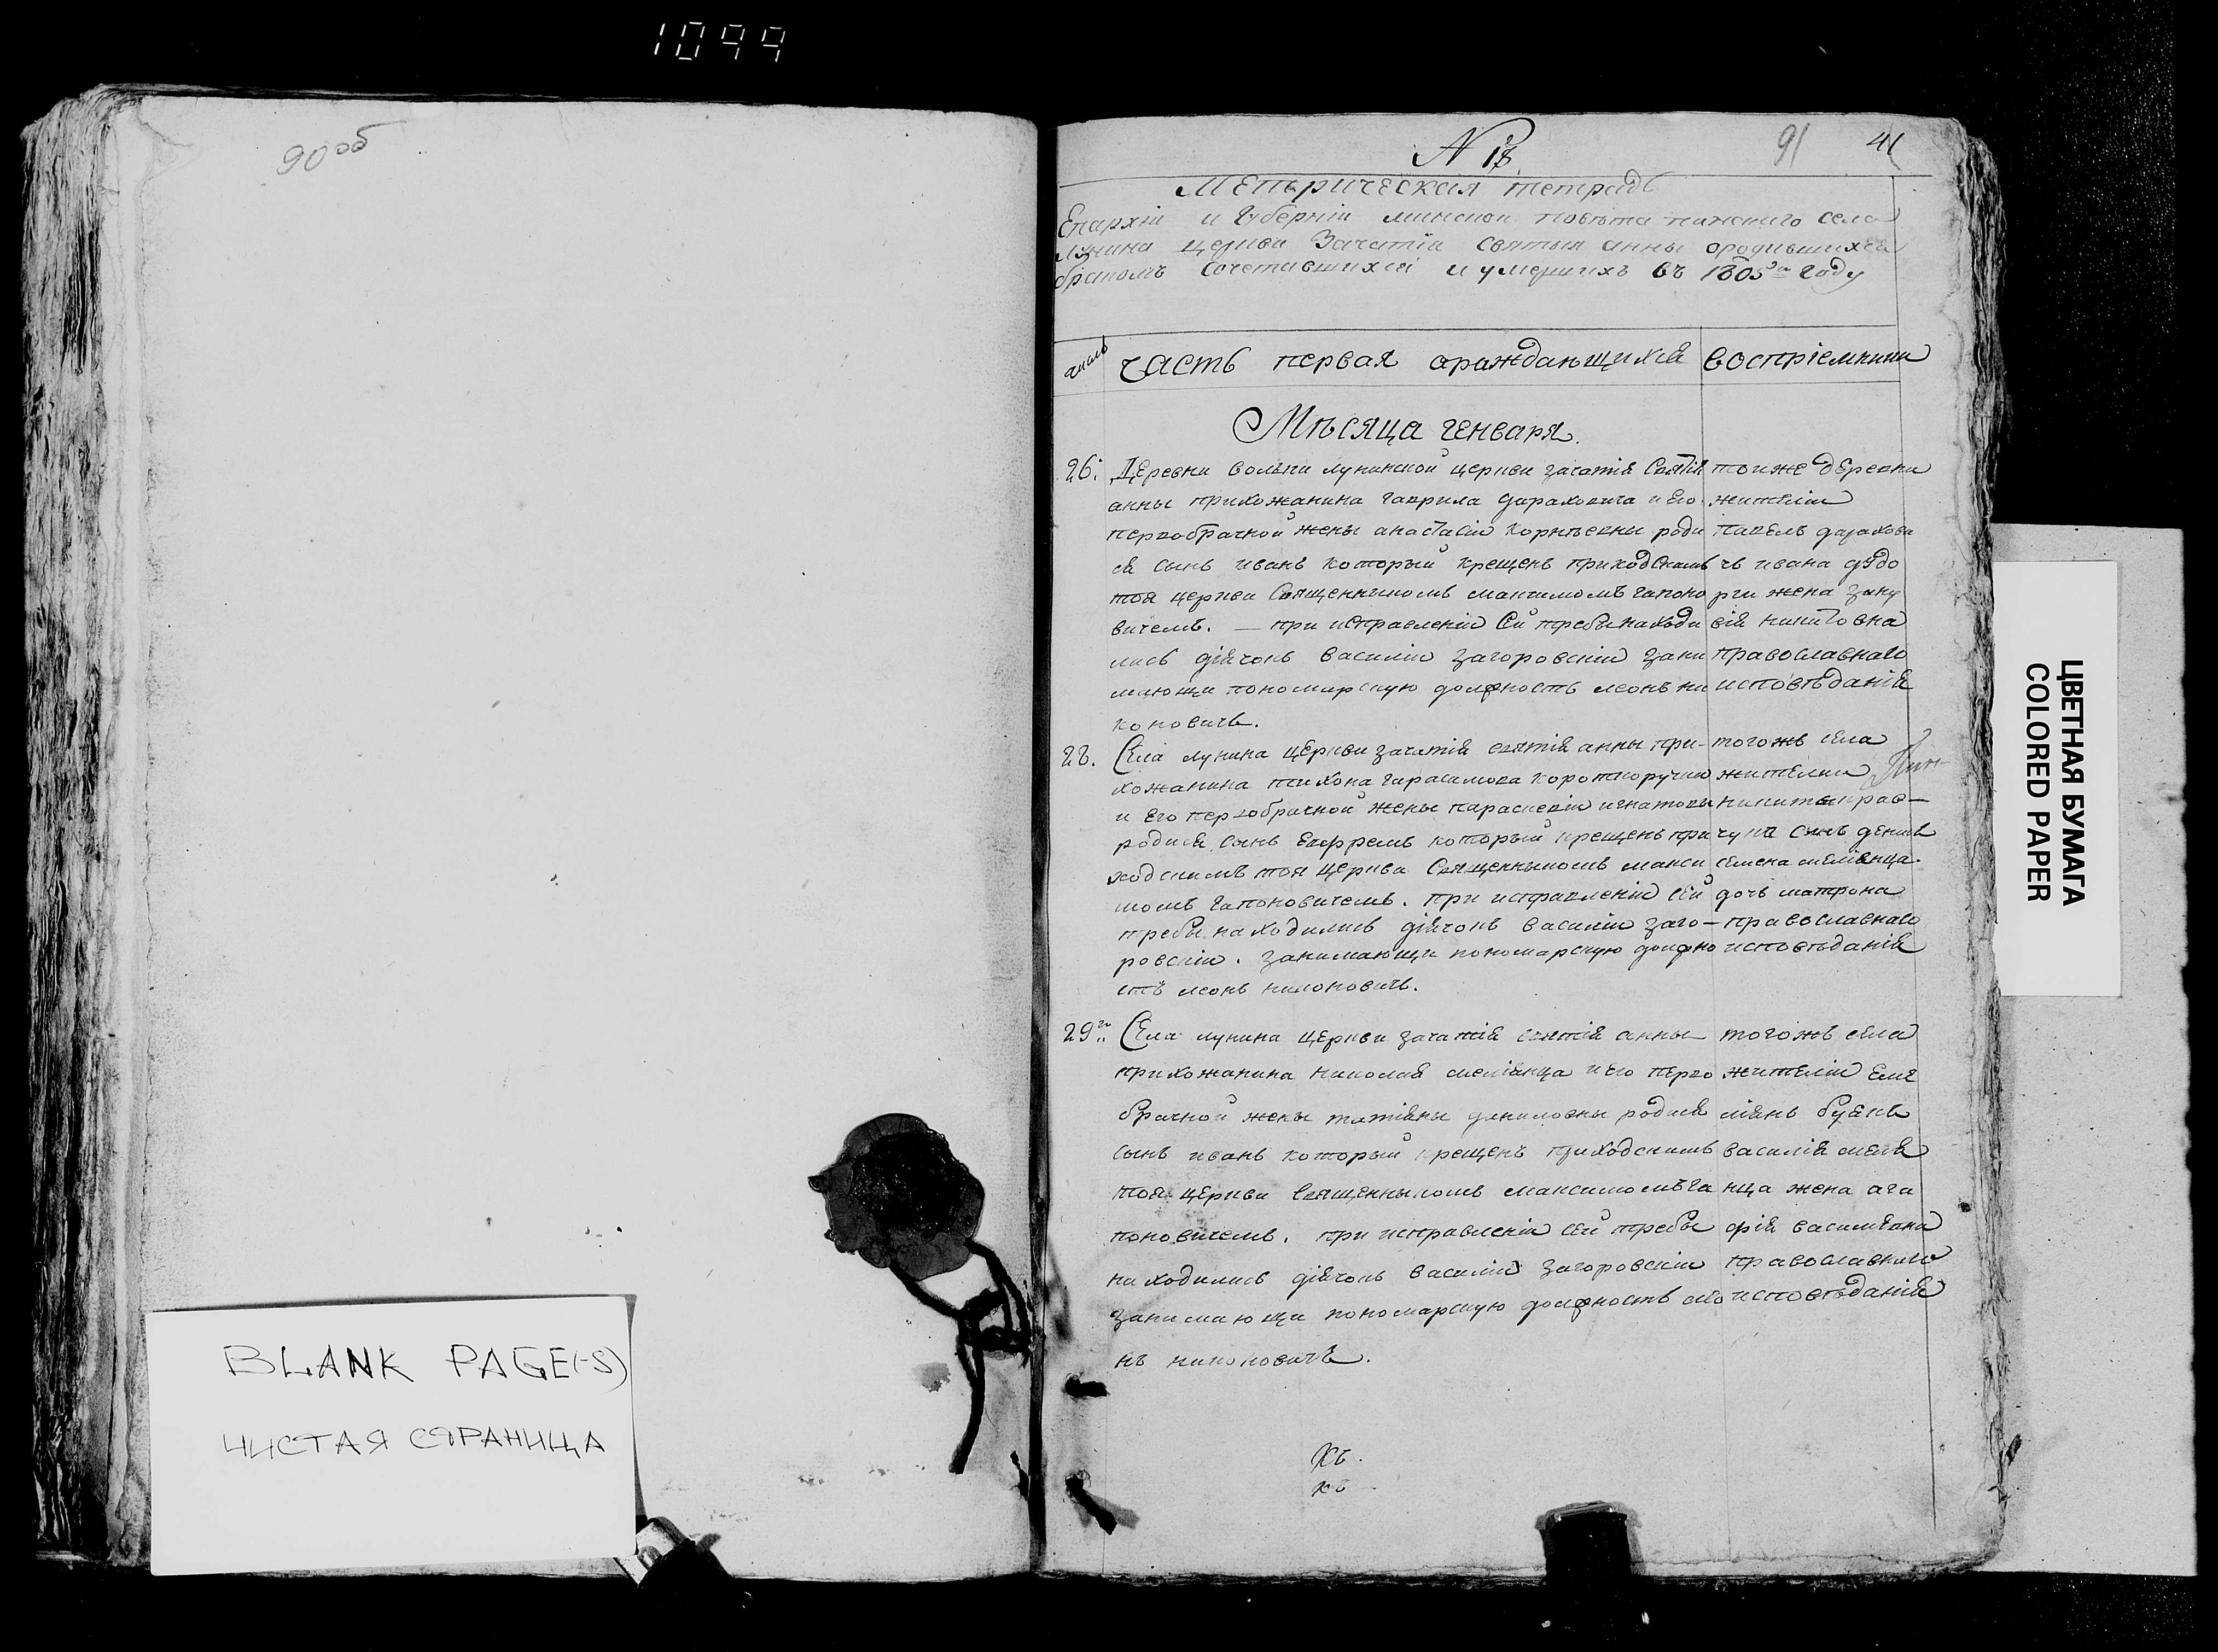 1099
90 об
BLANK PAGE(-S)
ЧИСТАЯ СТРАНИЦА
N 18
91 41
Метрическая тетрадь
Епархіи и Губерніи минской повѣта пинского села
Лунина церкви Зачатія Святыя анны ородившихся
бракомъ сочетавшихся и умершихъ въ 1805 году
число
часть первая ораждающихся
воспріемники
Мѣсяца генваря.
26.
Деревни вольки лунинской церкви зачатія святія
анны прихожанина гаврила дараховича и его
первобрачной жены анастасіи корнѣевны роди
ся сынъ иванъ который крещенъ приходскимъ
тоя церкви Священникомъ максимомъ гапоно
вичемъ. — при исправленіи сей требы находи
лись діячокъ василій загоровскій зани
мающи пономарскую должность леонъ ни
коновичъ.
той же деревни
жители
павелъ дарахови
чъ ивана
жена
православнаго
исповѣданія
Села лунина церкви зачатія святія анны при-
хожанина тихона гарасимова коротноручки
и его первобрачной жены параскевіи игнатовы
родися сынъ Ефремъ который крещенъ при
ходскимъ тоя церкви Священникомъ макси
момъ гапоновичемъ. при исправленіи сей
требы находились діячокъ василій заго-
ровскій. занимающи пономарскую должно
сть леонъ никоновичъ.
тогожъ села
жители
никиты крав-
сынъ денисъ
семена меліянца
дочь матрона
православнаго
исповѣданія
29
Села лунина церкви зачатія святія анны
прихожанина николая меліянца и его перво
брачной жены татіяны даниловны родися
сынъ иванъ который крещенъ приходскимъ
тоя церкви священникомъ максимомъ га
поновичемъ. при исправленіи сей требы
находились діячокъ василій загоровскій
занимающи пономарскую должность лео
нъ никоновичъ.
тогожъ села
жители еме
ліянъ
василія меля
нца жена ага
фія василіевна
православнаго
исповѣданія
ЦВЕТНАЯ БУМАГА
COLORED PAPER